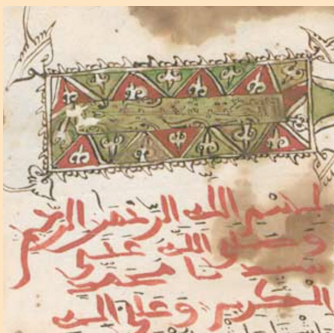 بسم الله الرحمن الرحيم
وصلى الله على
سيدنا محمد
الكريم وعلى اله